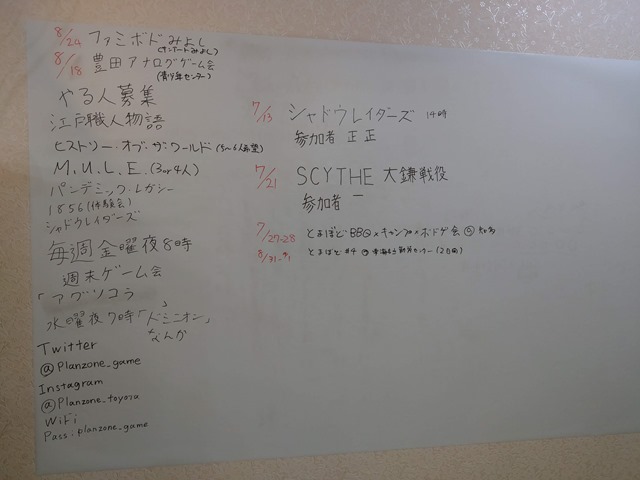 8/24 ファミボドみよし
(サンアートみよし)
8/18 豊田アナログゲーム会
(青少年センター)
やる人募集
江戸職人物語
ヒストリー・オブ・ザ・ワールド(5〜6人希望)
M.U.L.E.(3or4人)
パンデミック・レガシー
1856(体験会)
シャドウレイダーズ
毎週金曜夜8時
週末ゲーム会
「アグリコラ」
水曜夜7時「ドミニオン」
なんか
Twitter
@Planzone_game
Instagram
@Planzone_toyota
WiFi
Pass:planzone_game
7/13 シャドウレイダーズ 14時
参加者 正正
7/21 SCYTHE 大鎌戦役
参加者 一
7/27-28 とまぼどBBQ×キャンプ×ボドゲ会@
8/31-9/1 とまぼど#4 @ センター(2日間)